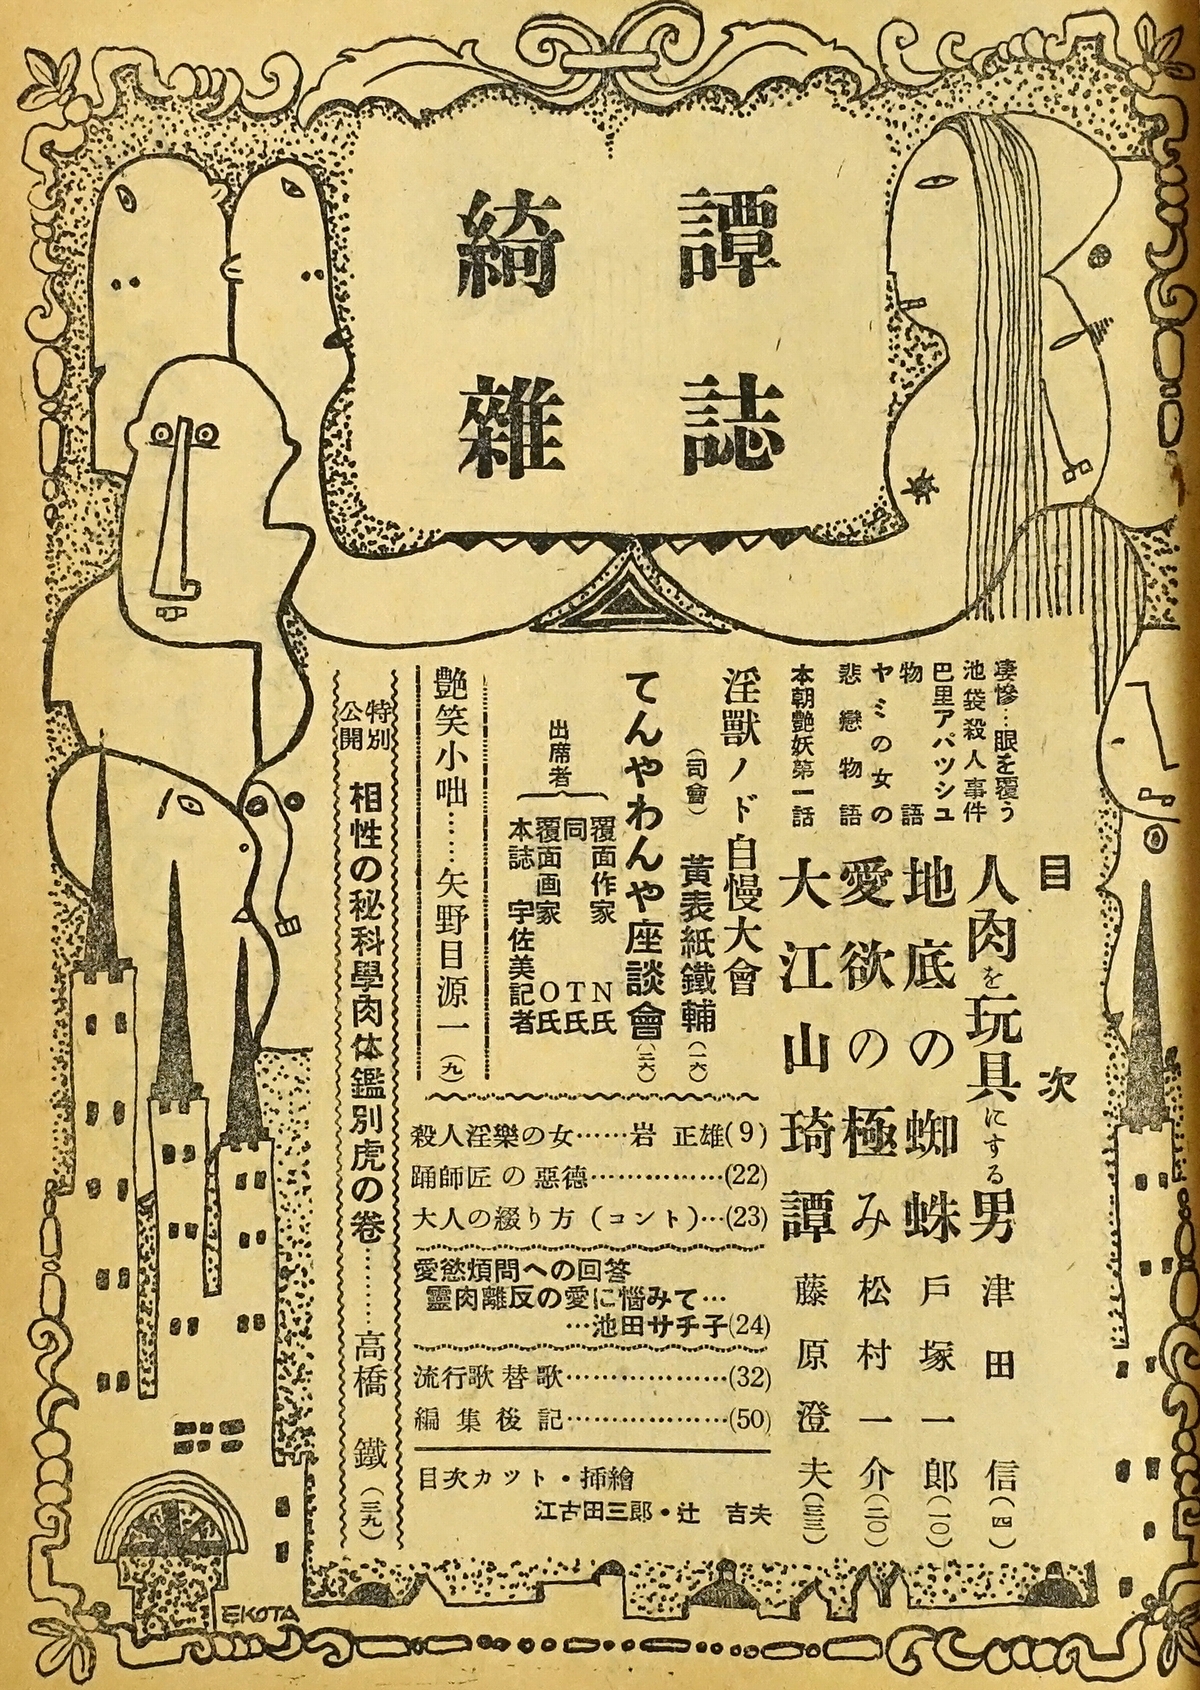 綺譚
雑誌
目次
凄惨…眼を覆う
池袋殺人事件
人肉を玩具にする男 津田信(四)
巴里アパツシユ
物語
地底の蜘蛛 戸塚一郎(一〇)
ヤミの女の
悲戀物語
愛欲の極み 松村一介(二〇)
本朝艶妖第一話
大江山琦譚 藤原澄夫(三三)
淫獸ノド自慢大會
(司會) 黄表紙鐵輔(一六)
てんやわんや座談會(二六)
出席者
覆面作家 N氏
同 T氏
覆面画家 O氏
本誌 宇佐美記者
艶笑小咄……矢野目源一(九)
殺人淫樂の女……岩 正雄(9)
踊師匠の惡德……………(22)
大人の綴り方(コント)…(23)
愛慾煩悶への回答
靈肉離反の愛に惱みて…
…池田サチ子(24)
流行歌替歌………………(32)
編集後記………………(50)
目次カツト・挿繪
江古田三郎・辻 吉夫
特別
公開
相性の秘科學肉体鑑別虎の卷………高橋 鐵(三九)
EKOTA